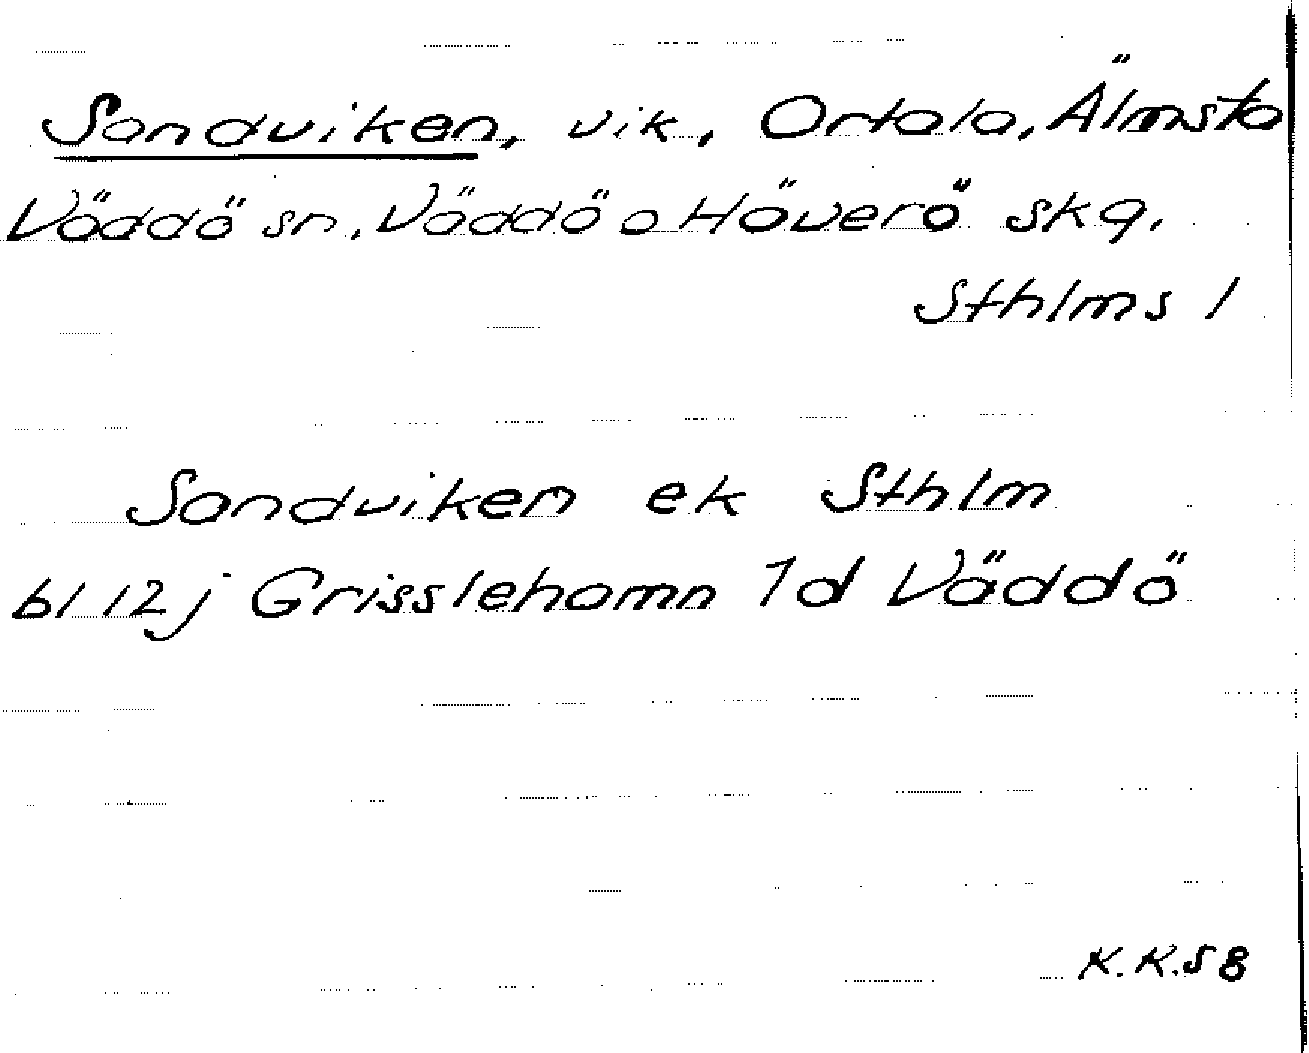 Sandviken, vik, Ortala, Älmsta
Väddö sn, Väddö o Häverö skg.
Sthlms l
Sandviken ek Sthlm
bl 12 j Grisslehamn 1d Väddö
K.K.58